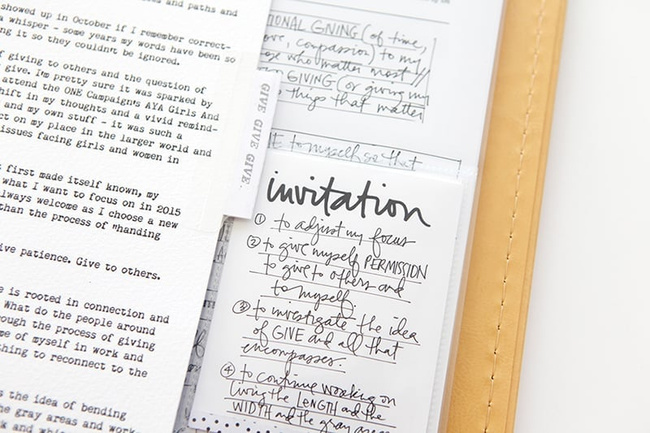 showed up in October if I remember correct-
whisper - some years my words have been so
ing it so they couldnt be ignored.
f giving to others and the question of
give. I'm pretty sure it was sparked by
attend the ONE Campaigns AYA Girls And
hift in my thoughts and a vivid remind-
and my own stuff - it was such a
ct on my place in the larger world and
issues facing girls and women in
first made itself known, my
what I want to focus on in 2015
always welcome as I choose a new
than the process of "handing
ive patience. Give to others.
e is rooted in connection and
What do the people around
rough the process of giving
me of myself in work and
thing to reconnect to the
s the idea of bending
he gray areas and work
GIVE GIVE GIVE.
TIONAL GIVING (of time,
ove, compassion) to my
ose who matter most //
GIVING (or giving my
things that matter
to myself so that
invitation
① to adjust my focus
② to give myself PERMISSION
to give to others and
to myself.
③ to investigate the idea
of GIVE and all that
encompasses.
④ to continue working on
living the LENGTH and the
WIDTH and the gray areas